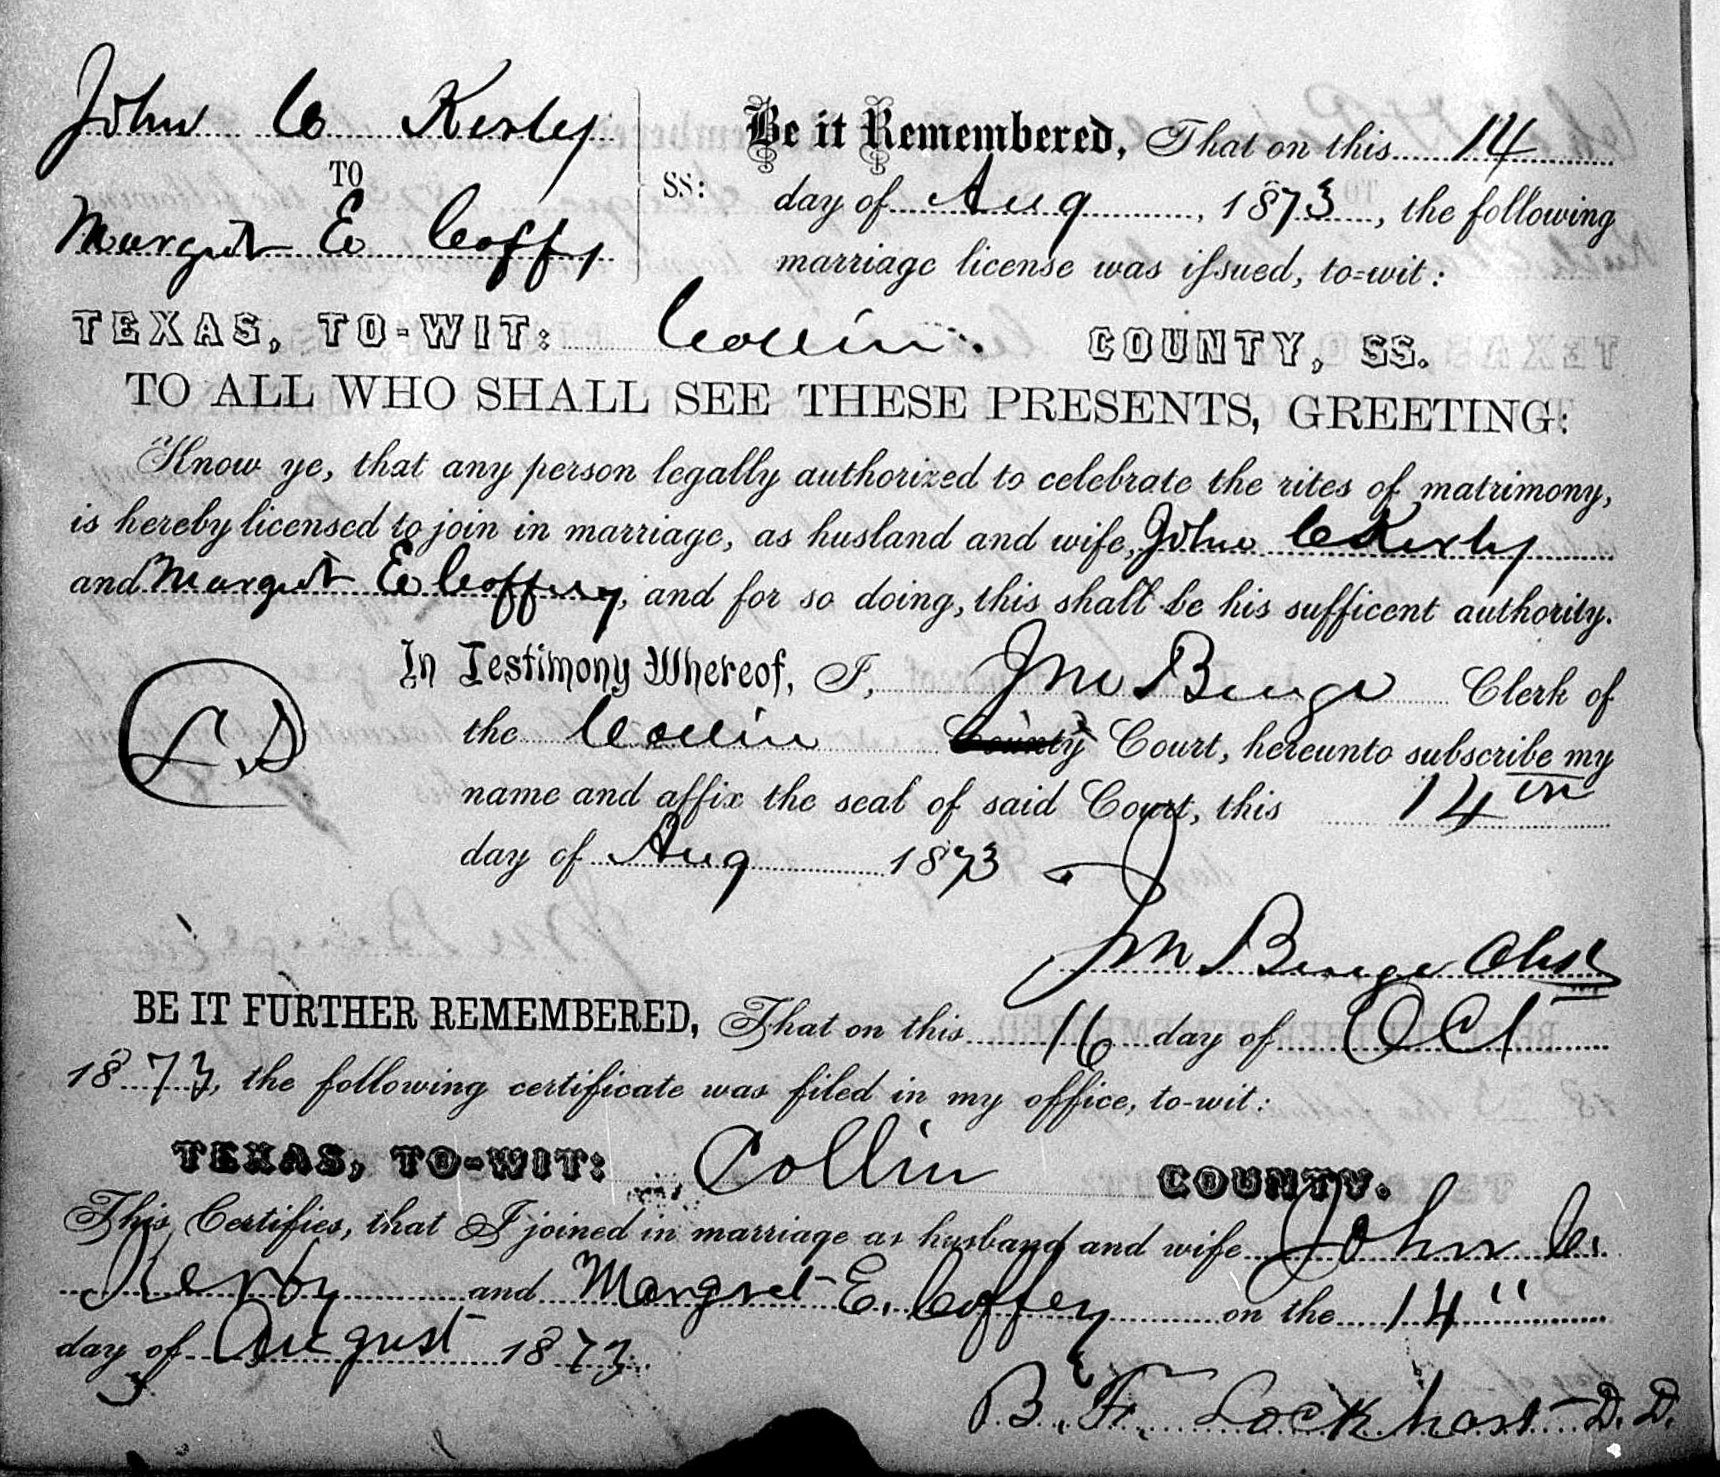 John C Kerby
TO
Margret E Coffy
SS:
Be it Remembered, That on this 14
day of Aug, 1873, the following
marriage license was issued, to=wit:
TEXAS, TO-WIT: Collin COUNTY, SS.
TO ALL WHO SHALL SEE THESE PRESENTS, GREETING:
Know ye, that any person legally authorized to celebrate the rites of matrimony,
is hereby licensed to join in marriage, as husland and wife, John C Kerby
and Margret E Coffey, and for so doing, this shall be his sufficent authority.
In Testimony Whereof, I, J M Benge Clerk of
the Collin County Court, hereunto subscribe my
L.S
name and affix the seal of said Court, this 14th
day of Aug 1873
J M Benge Clk
BE IT FURTHER REMEMBERED, That on this 16 day of Oct
1873, the following certificate was filed in my office, to-wit:
TEXAS, TO-WIT: Collin COUNTY.
This Certifies, that I joined in marriage as husband and wife John C.
Kerby and Margret E. Coffey on the 14"
day of August 1873.
B. F. Lockhart D. D.